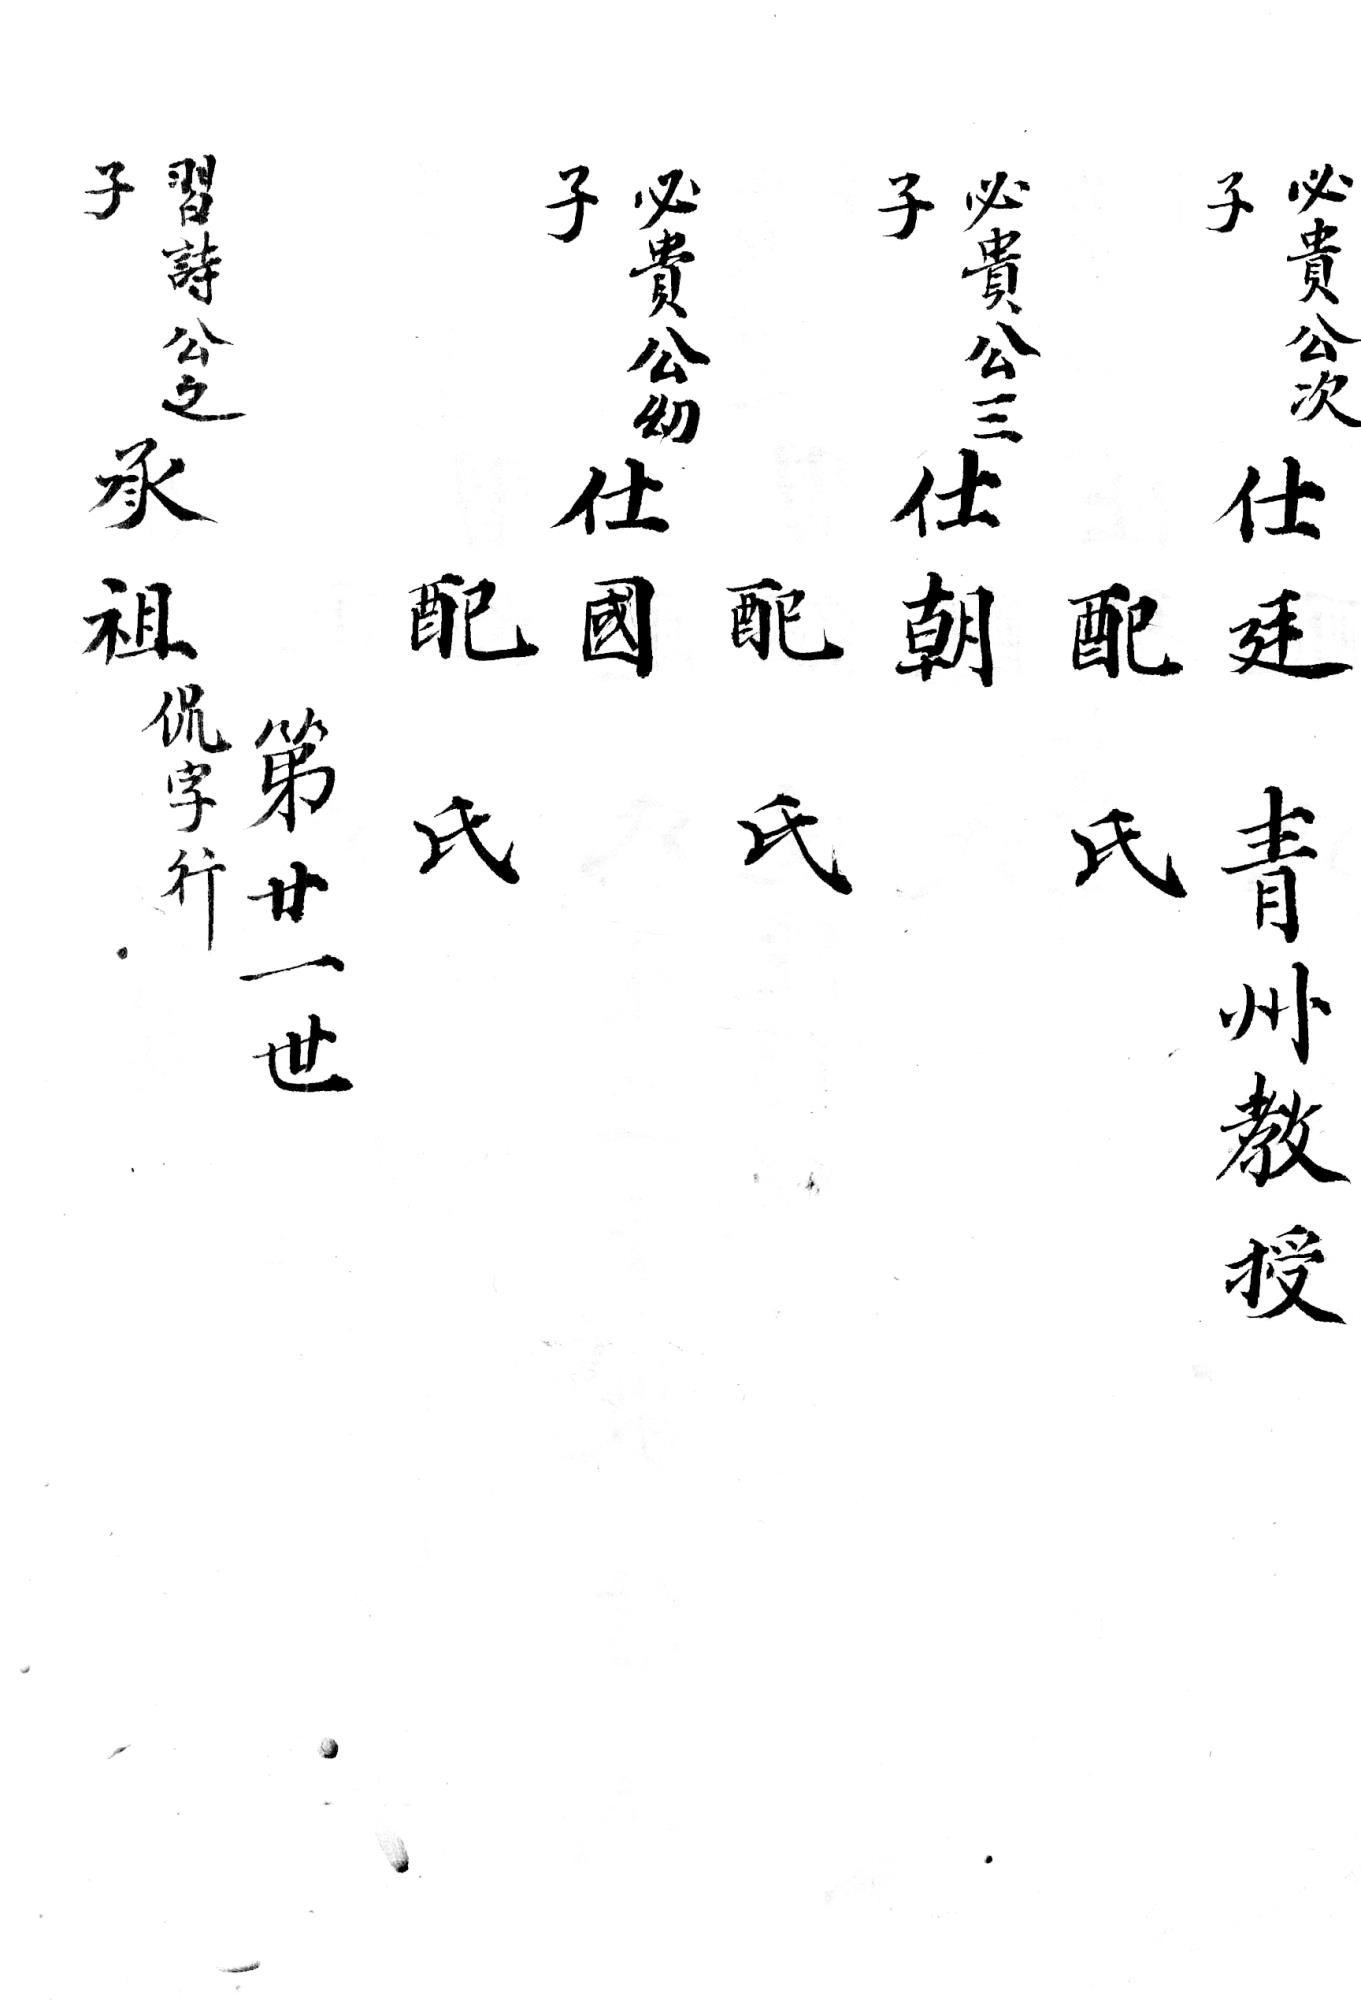 必貴公次
子
仕廷 青州教授
配 氏
必貴公三
子
仕朝
配 氏
必貴公幼
子
仕國
配 氏
第廿一世
習詩公之
子
承祖
侃字行